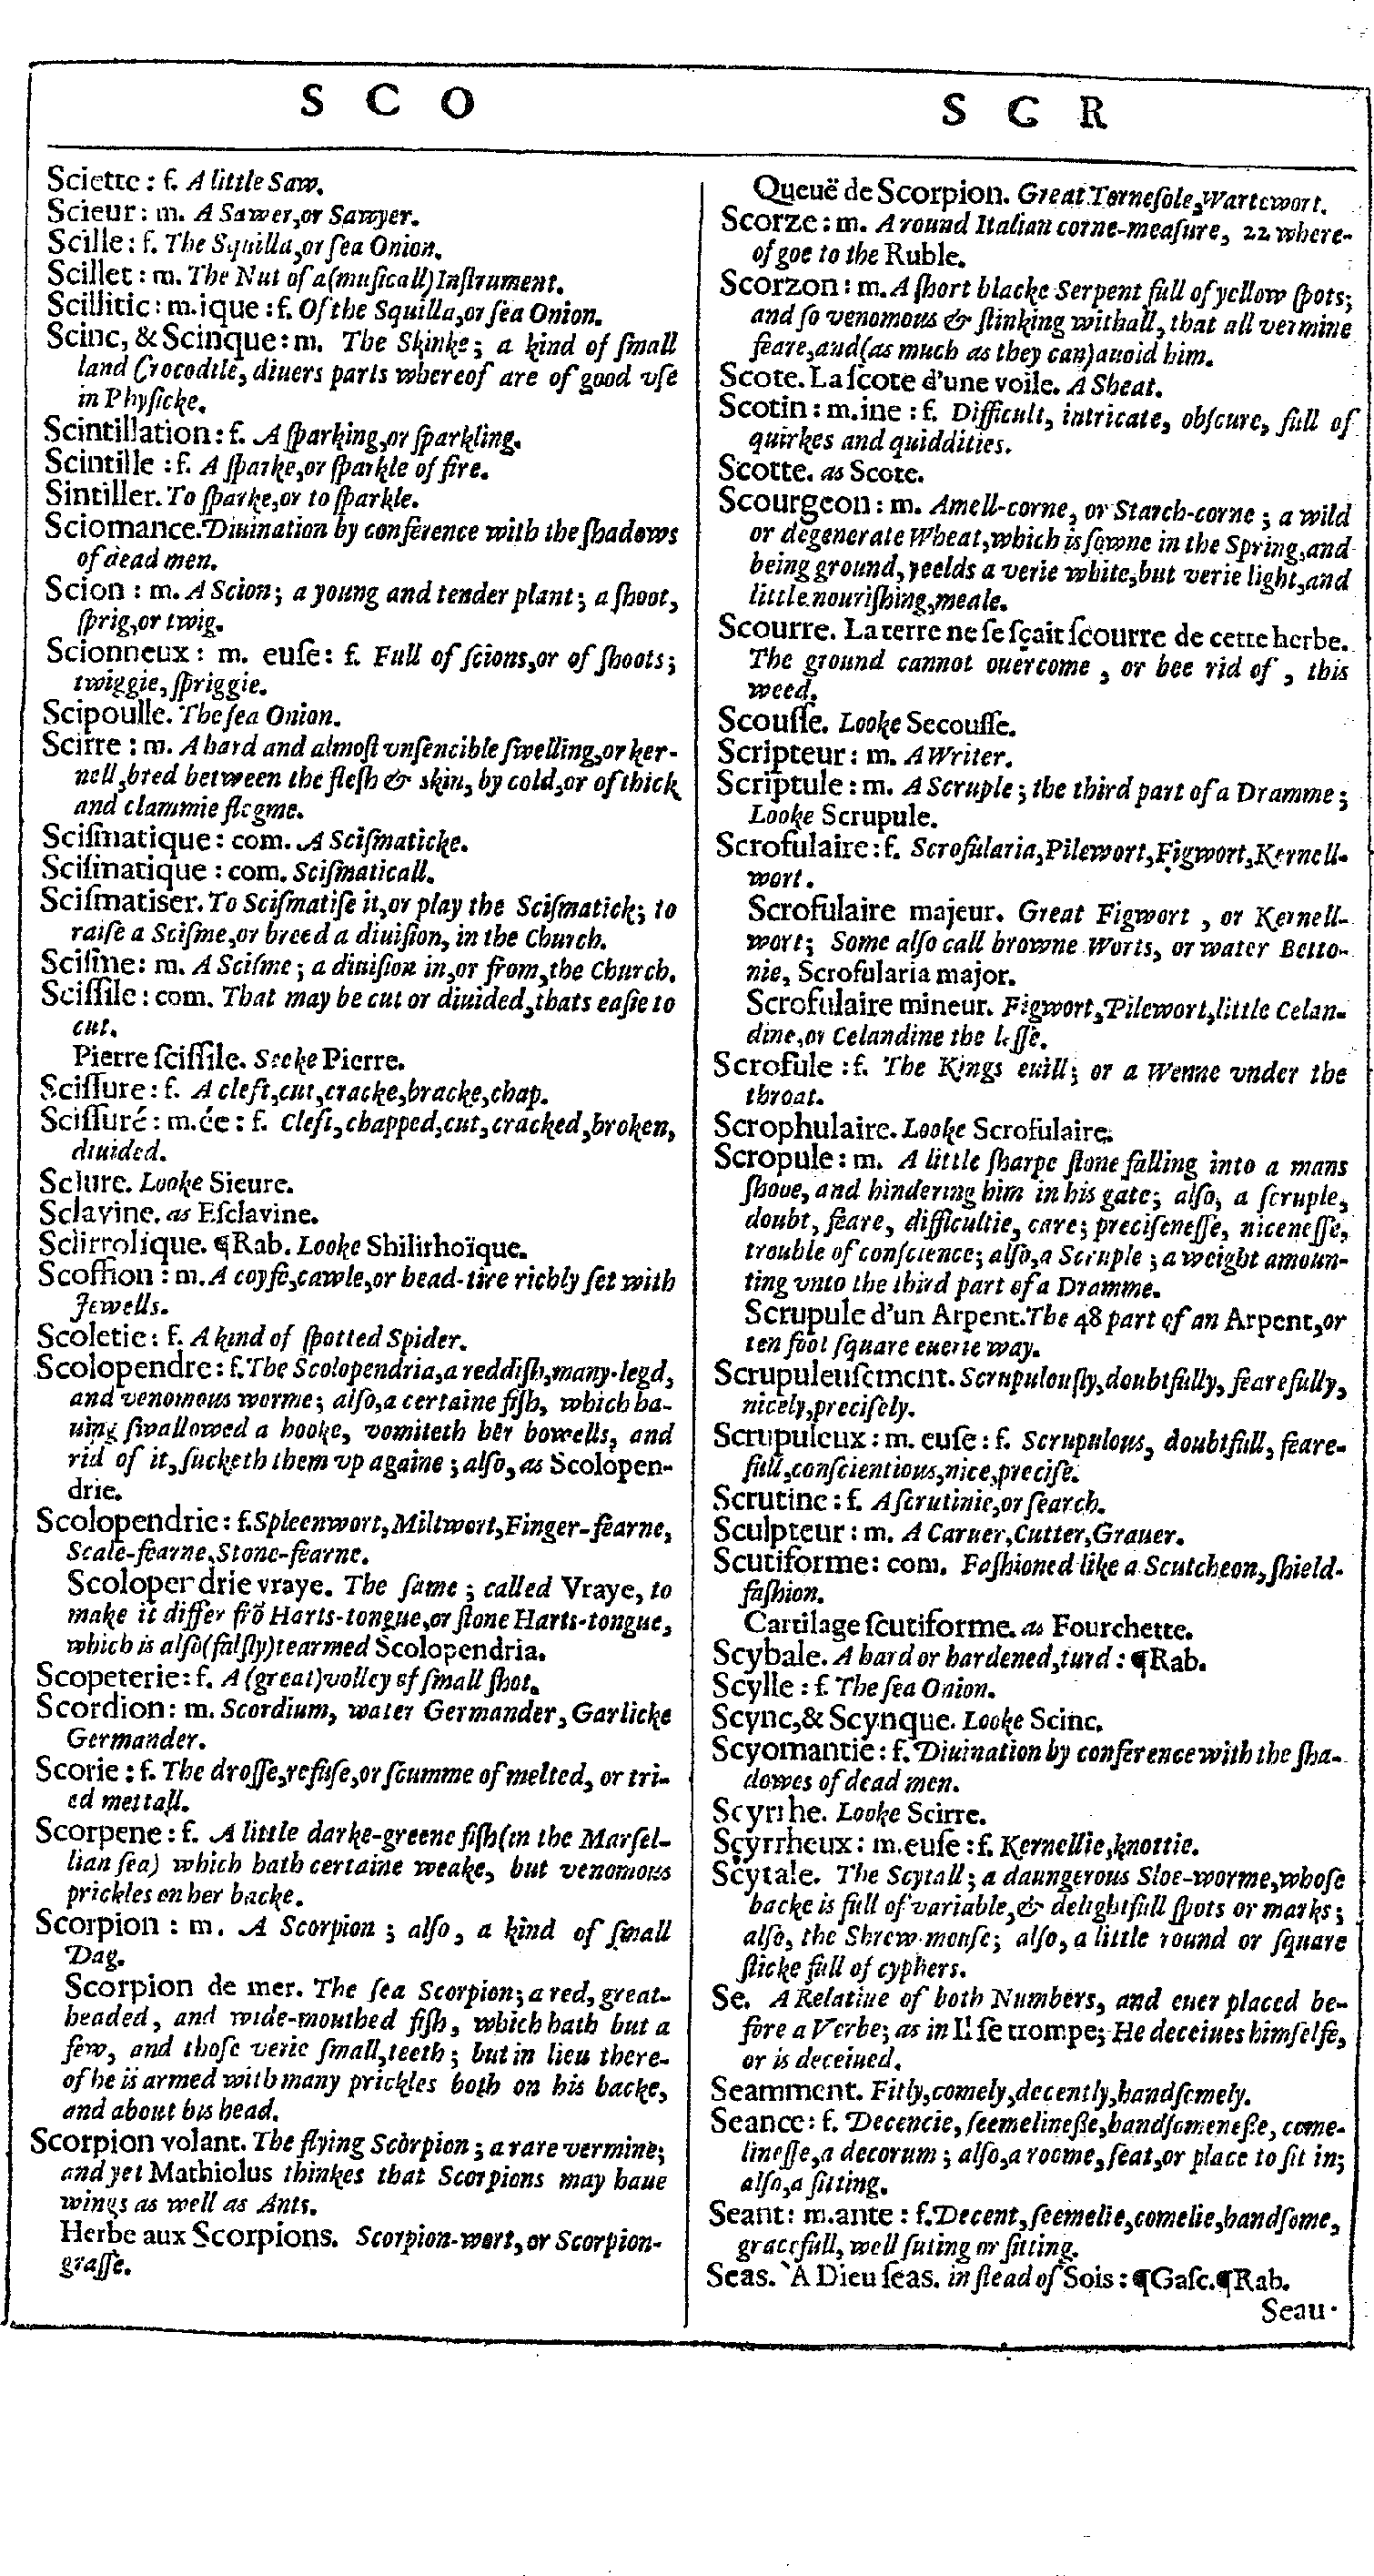 S C O
Sciette : f. A little Saw.
Scieur : m. A Sawer, or Sawyer.
Scille : f. The Squilla, or ſea Onion.
Scillet : m. The Nut of a (muſicall) Inſtrument.
Scillitic : m. ique : f. Of the Squilla, or ſea Onion.
Scinc, & Scinque : m. The Skinke ; a kind of ſmall
land Crocodile, diuers parts whereof are of good vſe
in Phyſicke.
Scintillation : f. A ſparking, or ſparkling.
Scintille : f. A ſparke, or ſparkle of fire.
Sintiller. To ſparke, or to ſparkle.
Sciomance. Diuination by conference with the ſhadows
of dead men.
Scion : m. A Scion ; a young and tender plant ; a ſhoot,
ſprig, or twig.
Scionneux : m. euſe : f. Full of ſcions, or of ſhoots ;
twiggie, ſpriggie.
Scipoulle. The ſea Onion.
Scirre : m. A hard and almoſt vnſencible ſwelling, or ker-
nell, bred between the fleſh & skin, by cold, or of thick
and clammie flegme.
Sciſmatique : com. A Sciſmaticke.
Sciſmatique : com. Sciſmaticall.
Sciſmatiser. To Sciſmatiſe it, or play the Sciſmatick ; to
raiſe a Sciſme, or breed a diuiſion, in the Church.
Sciſme : m. A Sciſme ; a diuiſion in, or from, the Church.
Sciſſile : com. That may be cut or diuided, thats eaſie to
cut.
Pierre ſciſſile. Seeke Pierre.
Sciſſure : f. A cleft, cut, cracke, bracke, chap.
Sciſſuré : m. ée : f. Cleft, chapped, cut, cracked, broken,
diuided.
Sciure. Looke Sieure.
Sclavine. as Eſclavine.
Sclirrolique. ¶Rab. Looke Shilirhoïque.
Scoffion : m. A coyfe, cawle, or head-tire richly ſet with
Jewells.
Scoletie : f. A kind of ſpotted Spider.
Scolopendre : f. The Scolopendria, a reddiſh, many-legd,
and venomous worme ; alſo, a certaine fiſh, which ha-
uing ſwallowed a hooke, vomiteth her bowells, and
rid of it, ſucketh them vp againe ; alſo, as Scolopen-
drie.
Scolopendrie : f. Spleenwort, Miltwort, Finger-fearne,
Scale-fearne, Stone-fearne.
Scolopendrie vraye. The ſame ; called Vraye, to
make it differ frō Harts-tongue, or ſtone Harts-tongue,
which is alſo (falſly) tearmed Scolopendria.
Scopeterie : f. A (great) volley of ſmall ſhot.
Scordion : m. Scordium, water Germander, Garlicke
Germander.
Scorie : f. The droſſe, refuſe, or ſcumme of melted, or tri-
ed mettall.
Scorpene : f. A little darke-greene fiſh (in the Marſel-
lian ſea) which hath certaine weake, but venomous
prickles on her backe.
Scorpion : m. A Scorpion ; alſo, a kind of ſmall
Dag.
Scorpion de mer. The ſea Scorpion ; a red, great-
headed, and wide-mouthed fiſh, which hath but a
few, and thoſe verie ſmall, teeth ; but in lieu there-
of he is armed with many prickles both on his backe,
and about his head.
Scorpion volant. The flying Scorpion ; a rare vermine ;
and yet Mathiolus thinkes that Scorpions may haue
wings as well as Ants.
Herbe aux Scorpions. Scorpion-wort, or Scorpion-
graſſe.
S C R
Queuë de Scorpion. Great Torneſole, Wartewort.
Scorze : m. A round Italian corne-meaſure, 22 where-
of goe to the Ruble.
Scorzon : m. A ſhort blacke Serpent full of yellow ſpots ;
and ſo venomous & ſtinking withall, that all vermine
feare, and (as much as they can) auoid him.
Scote. La ſcote d'une voile. A Sheat.
Scotin : m. ine : f. Difficult, intricate, obſcure, full of
quirkes and quiddities.
Scotte. as Scote.
Scourgeon : m. Amell-corne, or Starch-corne ; a wild
or degenerate Wheat, which is ſowne in the Spring, and
being ground, yeelds a verie white, but verie light, and
little nouriſhing, meale.
Scourre. La terre ne ſe ſçait ſcourre de cette herbe.
The ground cannot ouercome, or bee rid of, this
weed.
Scouſſe. Looke Secouſſe.
Scripteur : m. A Writer.
Scriptule : m. A Scruple ; the third part of a Dramme ;
Looke Scrupule.
Scrofulaire : f. Scrofularia, Pilewort, Figwort, Kernell-
wort.
Scrofulaire majeur. Great Figwort, or Kernell-
wort ; Some alſo call browne Worts, or water Betto-
nie, Scrofularia major.
Scrofulaire mineur. Figwort, Pilewort, little Celan-
dine, or Celandine the leſſe.
Scrofule : f. The Kings euill ; or a Wenne vnder the
throat.
Scrophulaire. Looke Scrofulaire.
Scropule : m. A little ſharpe ſtone falling into a mans
ſhooe, and hindering him in his gate ; alſo, a ſcruple,
doubt, feare, difficultie, care ; preciſeneſſe, niceneſſe,
trouble of conſcience ; alſo, a Scruple ; a weight amoun-
ting vnto the third part of a Dramme.
Scrupule d'un Arpent. The 48 part of an Arpent, or
ten foot ſquare euerie way.
Scrupuleuſement. Scrupulouſly, doubtfully, fearefully,
nicely, preciſely.
Scrupuleux : m. euſe : f. Scrupulous, doubtfull, feare-
full, conſcientious, nice, preciſe.
Scrutine : f. A ſcrutinie, or ſearch.
Sculpteur : m. A Caruer, Cutter, Grauer.
Scutiforme : com. Faſhioned like a Scutcheon, ſhield-
faſhion.
Cartilage ſcutiforme. as Fourchette.
Scybale. A hard or hardened, turd : ¶Rab.
Scylle : f. The ſea Onion.
Scync, & Scynque. Looke Scinc.
Scyomantie : f. Diuination by conference with the ſha-
dowes of dead men.
Scyrrhe. Looke Scirre.
Scyrrheux : m. euſe : f. Kernellie, knottie.
Scytale. The Scytall ; a daungerous Sloe-worme, whoſe
backe is full of variable, & delightfull ſpots or marks ;
alſo, the Shrew-mouſe ; alſo, a little round or ſquare
ſticke full of cyphers.
Se. A Relatiue of both Numbers, and euer placed be-
fore a Verbe ; as in Il ſe trompe ; He deceiues himſelfe,
or is deceiued.
Seamment. Fitly, comely, decently, handſomely.
Seance : f. Decencie, ſeemelineſſe, handſomeneſſe, come-
lineſſe, a decorum ; alſo, a roome, ſeat, or place to ſit in ;
alſo, a ſitting.
Seant : m. ante : f. Decent, ſeemelie, comelie, handſome,
gracefull, well ſuting or fitting.
Seas. À Dieu ſeas. in ſtead of Sois : ¶Gaſc. ¶Rab.
Seau